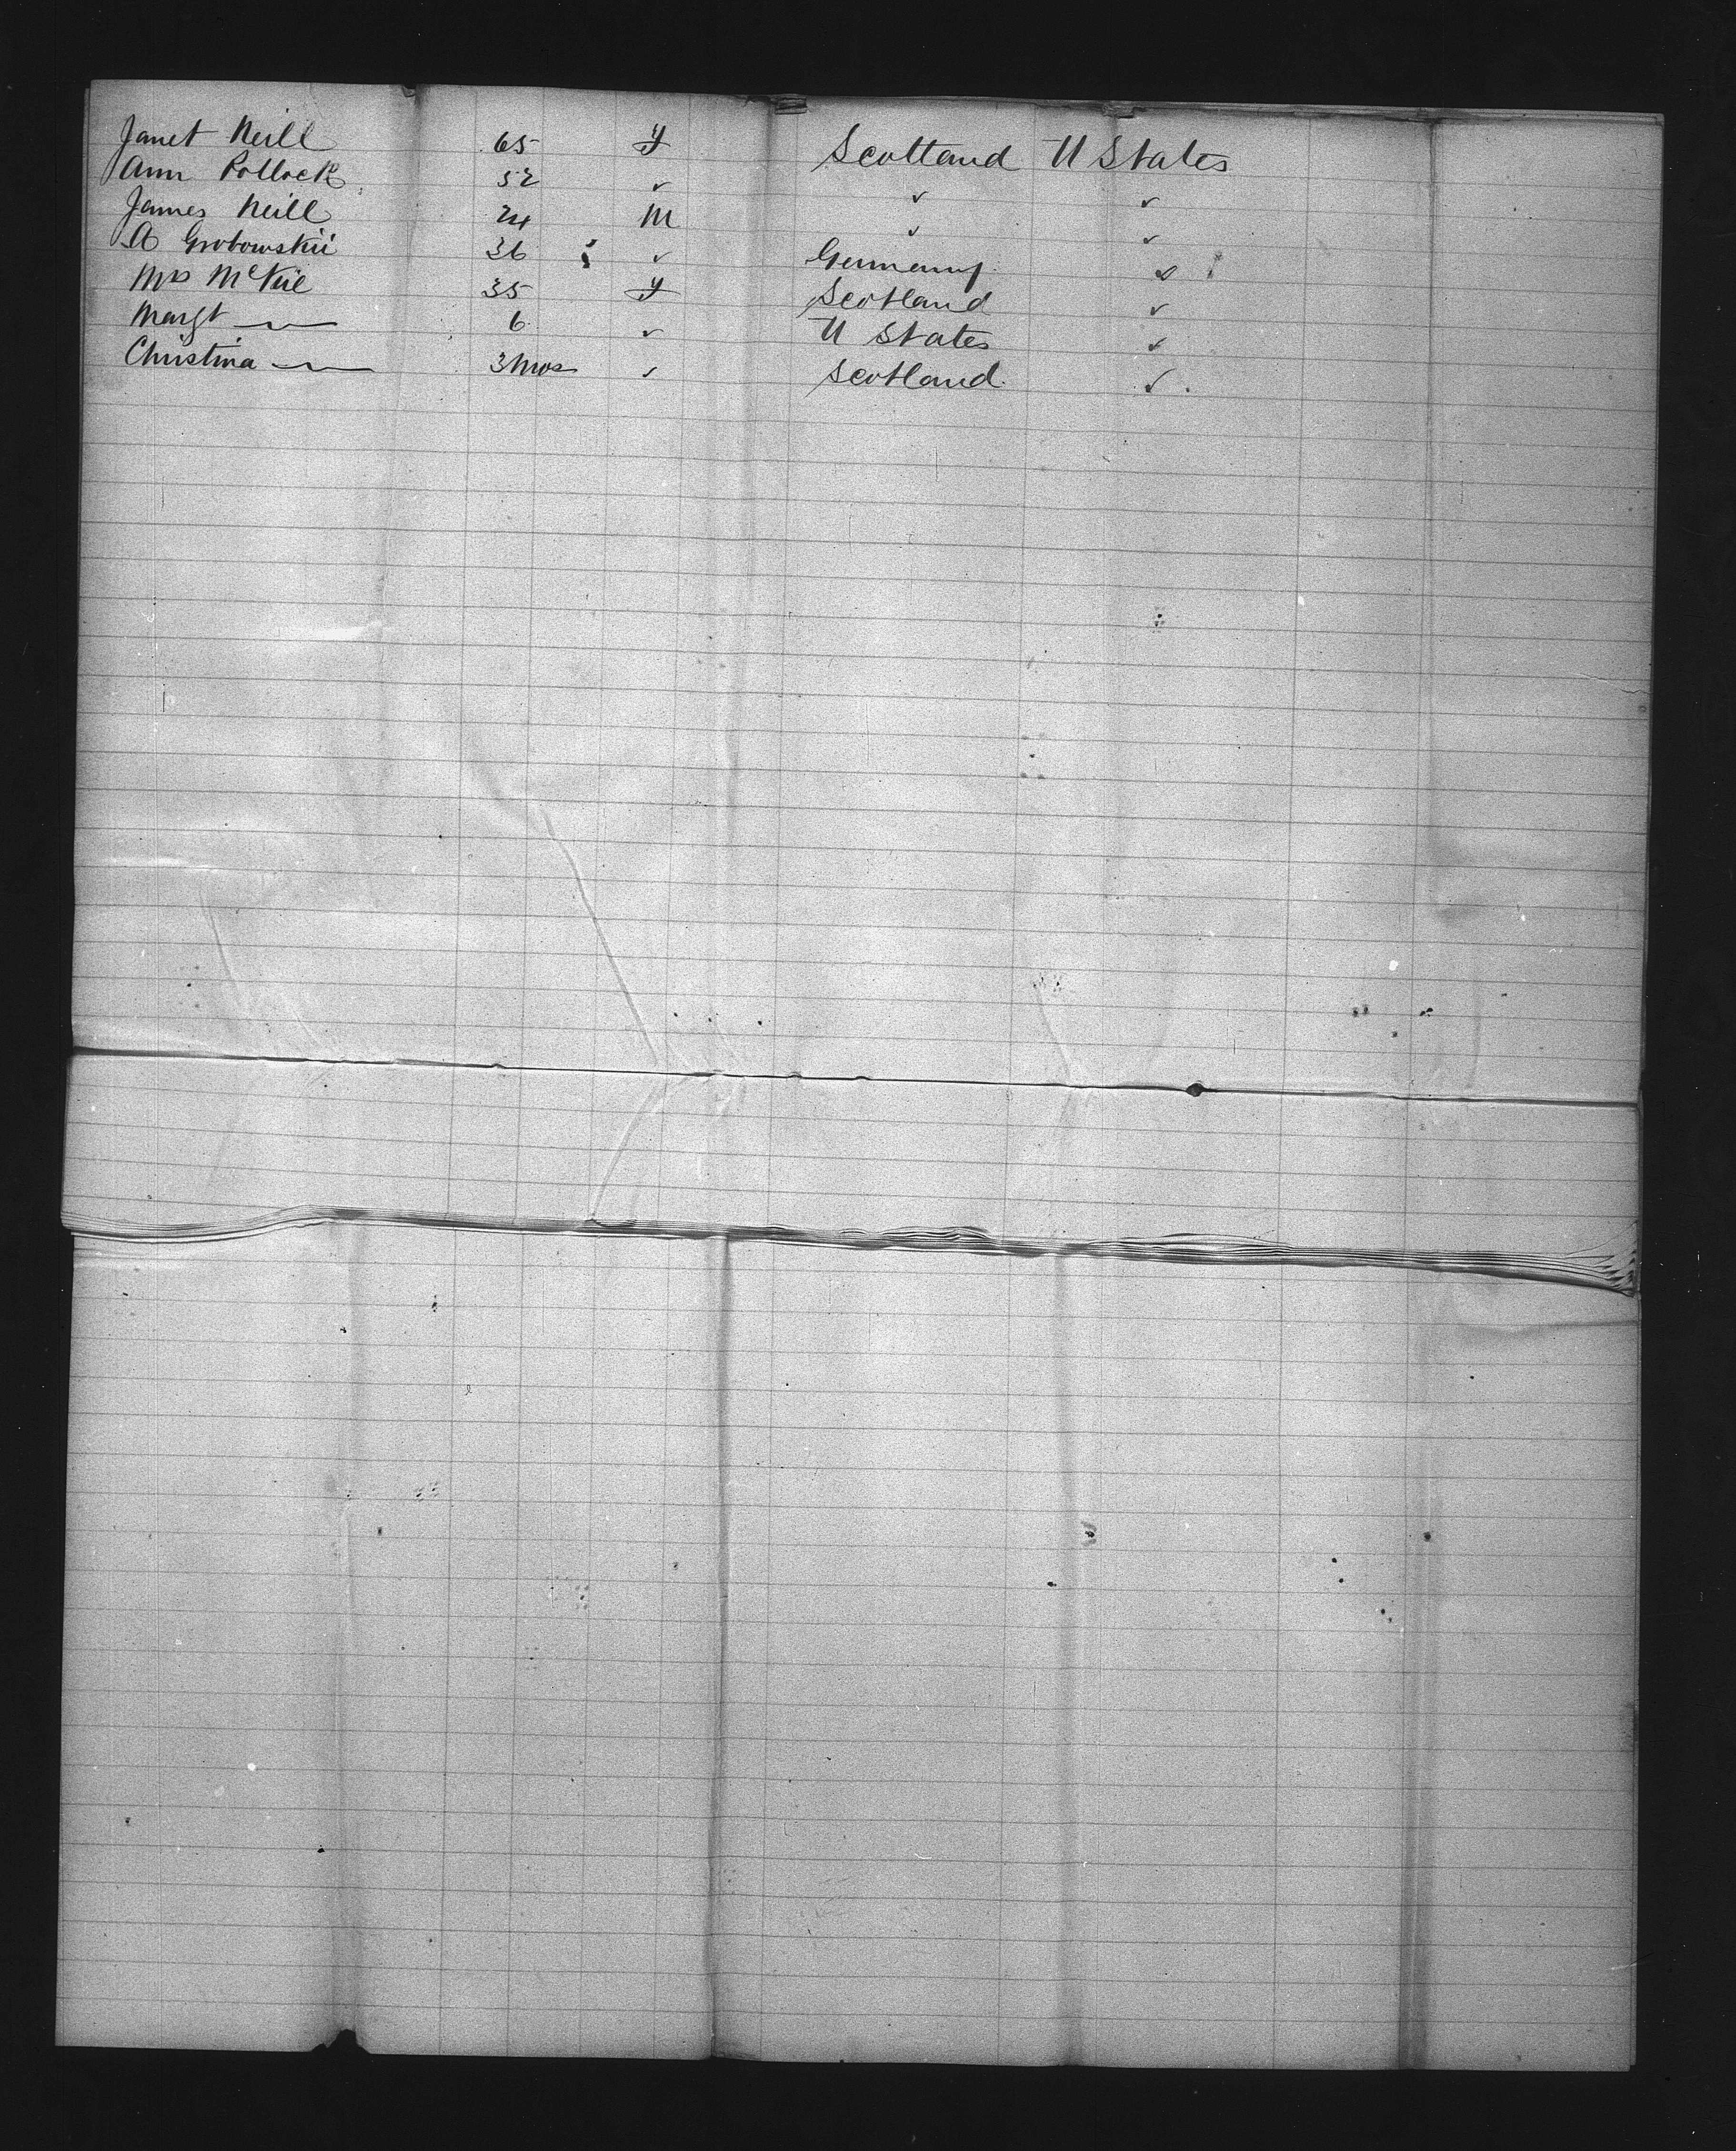 Janet Neill 65 F Scotland U States
Ann Pollock 32 ✓ ✓ ✓
James Neill 24 M ✓ ✓
A Grobowskii 36 ✓ Germany ✓
Mrs McKie 35 F Scotland ✓
Margt — 6 ✓ U States ✓
Christina — 3 mos ✓ Scotland ✓